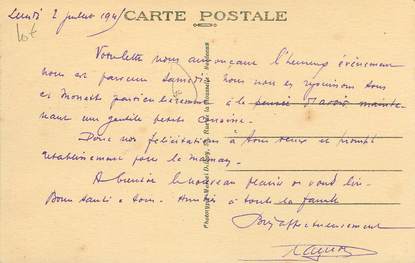 Lundi 2 juillet 1945
CARTE POSTALE
lot
Votre lettre nous annonçant l'heureux événement
nous est parvenue samedi. nous nous en réjouissons tous
et Monett particulièrement à la pensée d'avoir mainte
nant une gentille petite cousine.
Donc nos félicitations à tous deux et prompt
rétablissement pour la maman.
A bientôt le nouveau plaisir de vous lire.
Bonne santé à tous. Amitiés à toute la famille
Bien affectueusement